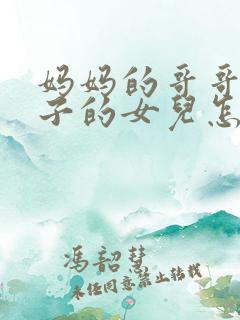 妈妈的哥哥
子的女兒怎
馮韶慧
未经同意禁止转载